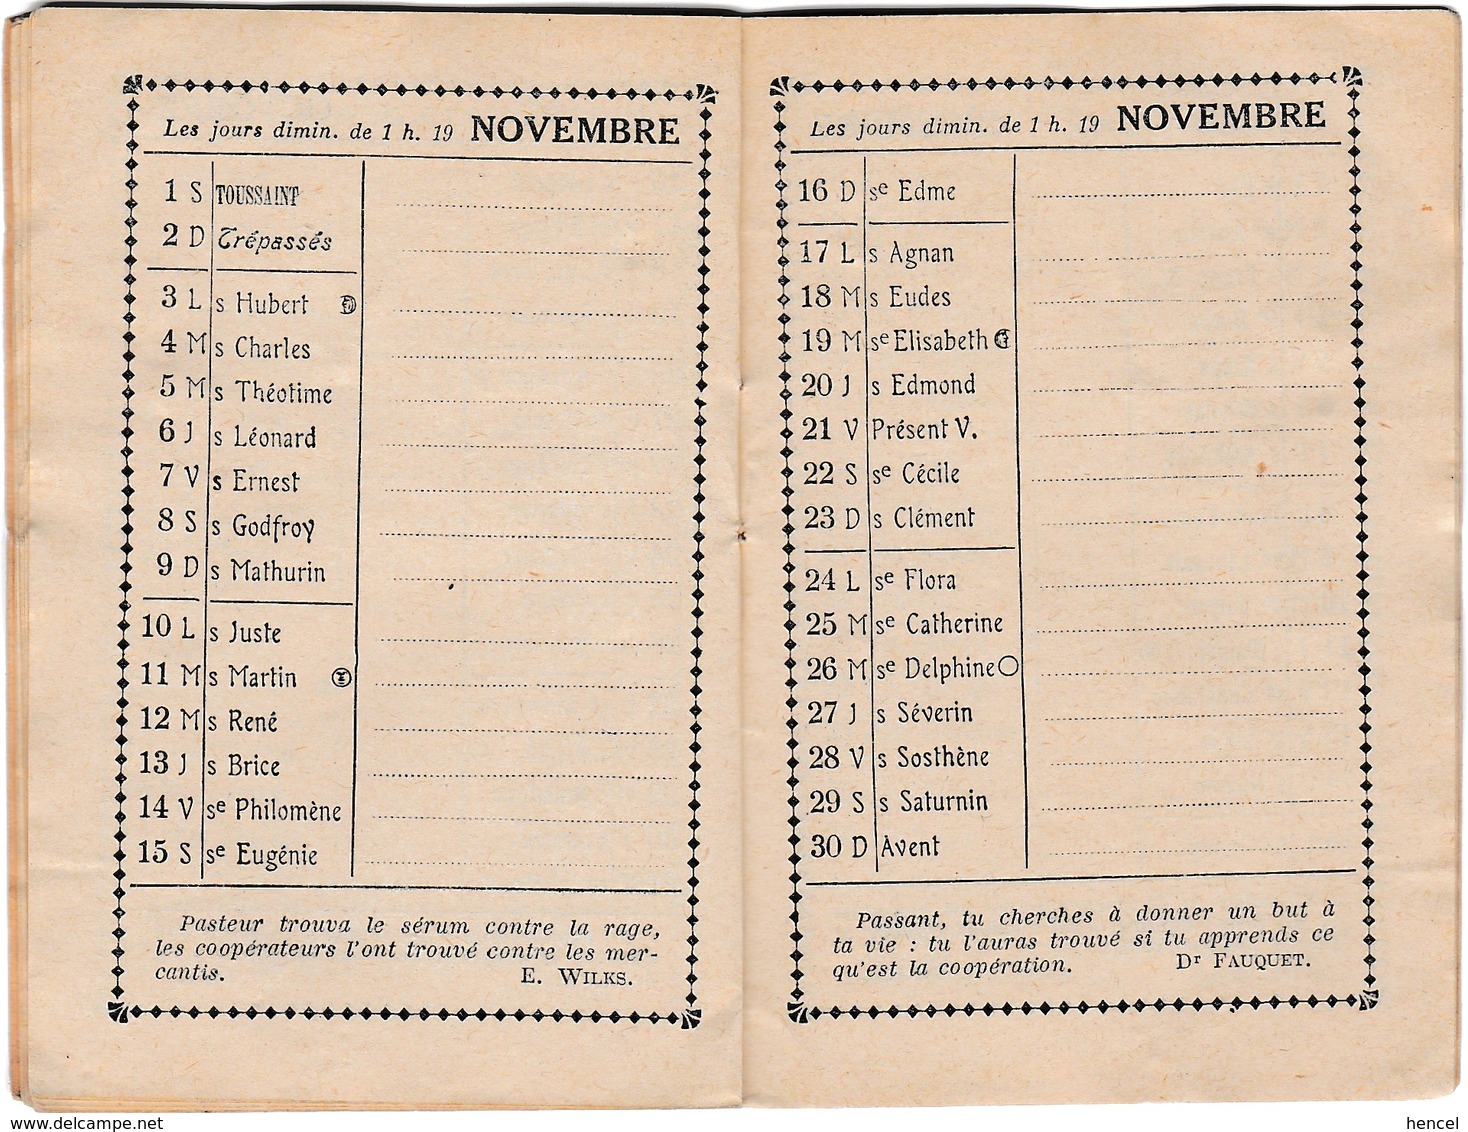 Les jours dimin. de 1 h. 19 NOVEMBRE
1 S TOUSSAINT
2 D Trépassés
3 L s Hubert
4 M s Charles
5 M s Théotime
6 J s Léonard
7 V s Ernest
8 S s Godfroy
9 D s Mathurin
10 L s Juste
11 M s Martin
12 M s René
13 J s Brice
14 V se Philomène
15 S se Eugénie
Pasteur trouva le sérum contre la rage,
les coopérateurs l'ont trouvé contre les mer-
cantis. E. WILKS.
Les jours dimin. de 1 h. 19 NOVEMBRE
16 D se Edme
17 L s Agnan
18 M s Eudes
19 M se Elisabeth
20 J s Edmond
21 V Présent V.
22 S se Cécile
23 D s Clément
24 L se Flora
25 M se Catherine
26 M se Delphine
27 J s Séverin
28 V s Sosthène
29 S s Saturnin
30 D Avent
Passant, tu cherches à donner un but à
ta vie : tu l'auras trouvé si tu apprends ce
qu'est la coopération. Dr FAUQUET.
www.delcampe.net
hencel